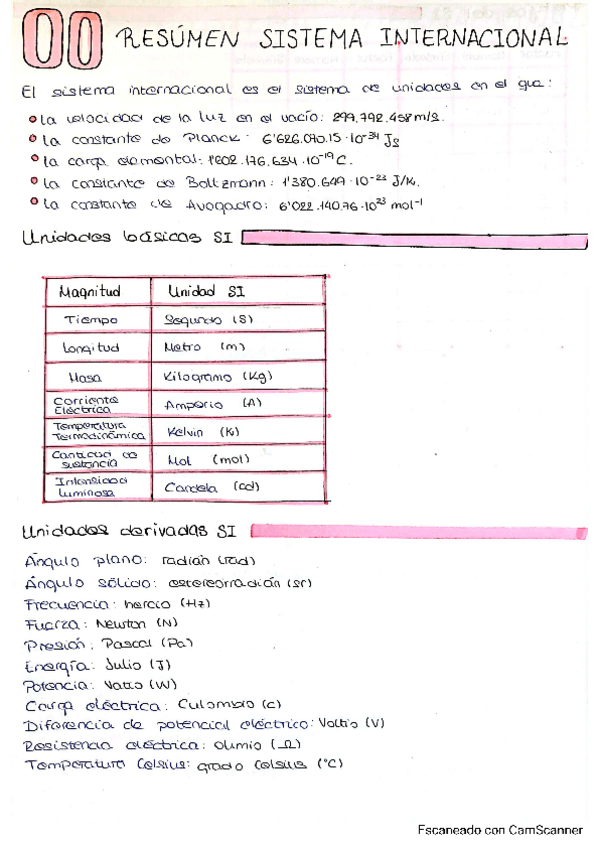 00 RESÚMEN SISTEMA INTERNACIONAL
El sistema internacional es el sistema de unidades en el que:
la velocidad de la luz en el vacío: 299.792.458 m/s.
la constante de Planck: 6'626.070.15·10⁻³⁴ Js
la carga elemental: 1'602.176.634·10⁻¹⁹ C.
la constante de Boltzmann: 1'380.649·10⁻²³ J/K.
la constante de Avogadro: 6'022.140.76·10²³ mol⁻¹
Unidades básicas SI
Magnitud Unidad SI
Tiempo Segundo (S)
Longitud Metro (m)
Masa Kilogramo (Kg)
Corriente
Eléctrica Amperio (A)
Temperatura
Termodinámica Kelvin (K)
Cantidad de
sustancia Mol (mol)
Intensidad
luminosa Candela (cd)
Unidades derivadas SI
Ángulo plano: radián (rad)
Ángulo sólido: estereorradián (sr)
Frecuencia: hercio (Hz)
Fuerza: Newton (N)
Presión: Pascal (Pa)
Energía: Julio (J)
Potencia: Vatio (W)
Carga eléctrica: Culombio (c)
Diferencia de potencial eléctrico: Voltio (V)
Resistencia eléctrica: ohmio (Ω)
Temperatura Celsius: grado Celsius (°C)
Escaneado con CamScanner